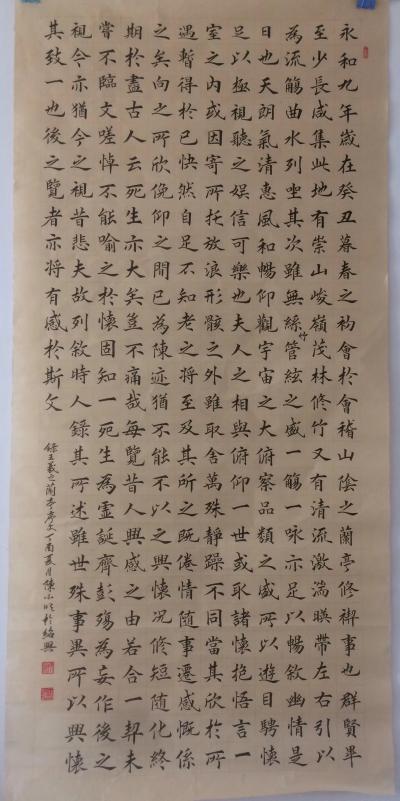 永和九年歲在癸丑暮春之初會於會稽山陰之蘭亭修禊事也群賢畢
至少長咸集此地有崇山峻嶺茂林修竹又有清流激湍暎帶左右引以
為流觴曲水列坐其次雖無絲竹管絃之盛一觴一詠亦足以暢敘幽情是
日也天朗氣清惠風和暢仰觀宇宙之大俯察品類之盛所以遊目騁懷
足以極視聽之娛信可樂也夫人之相與俯仰一世或取諸懷抱悟言一
室之內或因寄所托放浪形骸之外雖取舍萬殊靜躁不同當其欣於所
遇暫得於己快然自足不知老之將至及其所之既倦情隨事遷感慨係
之矣向之所欣俛仰之間已為陳迹猶不能不以之興懷況修短隨化終
期於盡古人云死生亦大矣豈不痛哉每覽昔人興感之由若合一契未
嘗不臨文嗟悼不能喻之於懷固知一死生為虛誕齊彭殤為妄作後之
視今亦猶今之視昔悲夫故列敘時人錄其所述雖世殊事異所以興懷
其致一也後之覽者亦將有感於斯文
錄王羲之蘭亭序文丁酉夏月陳小於紹興